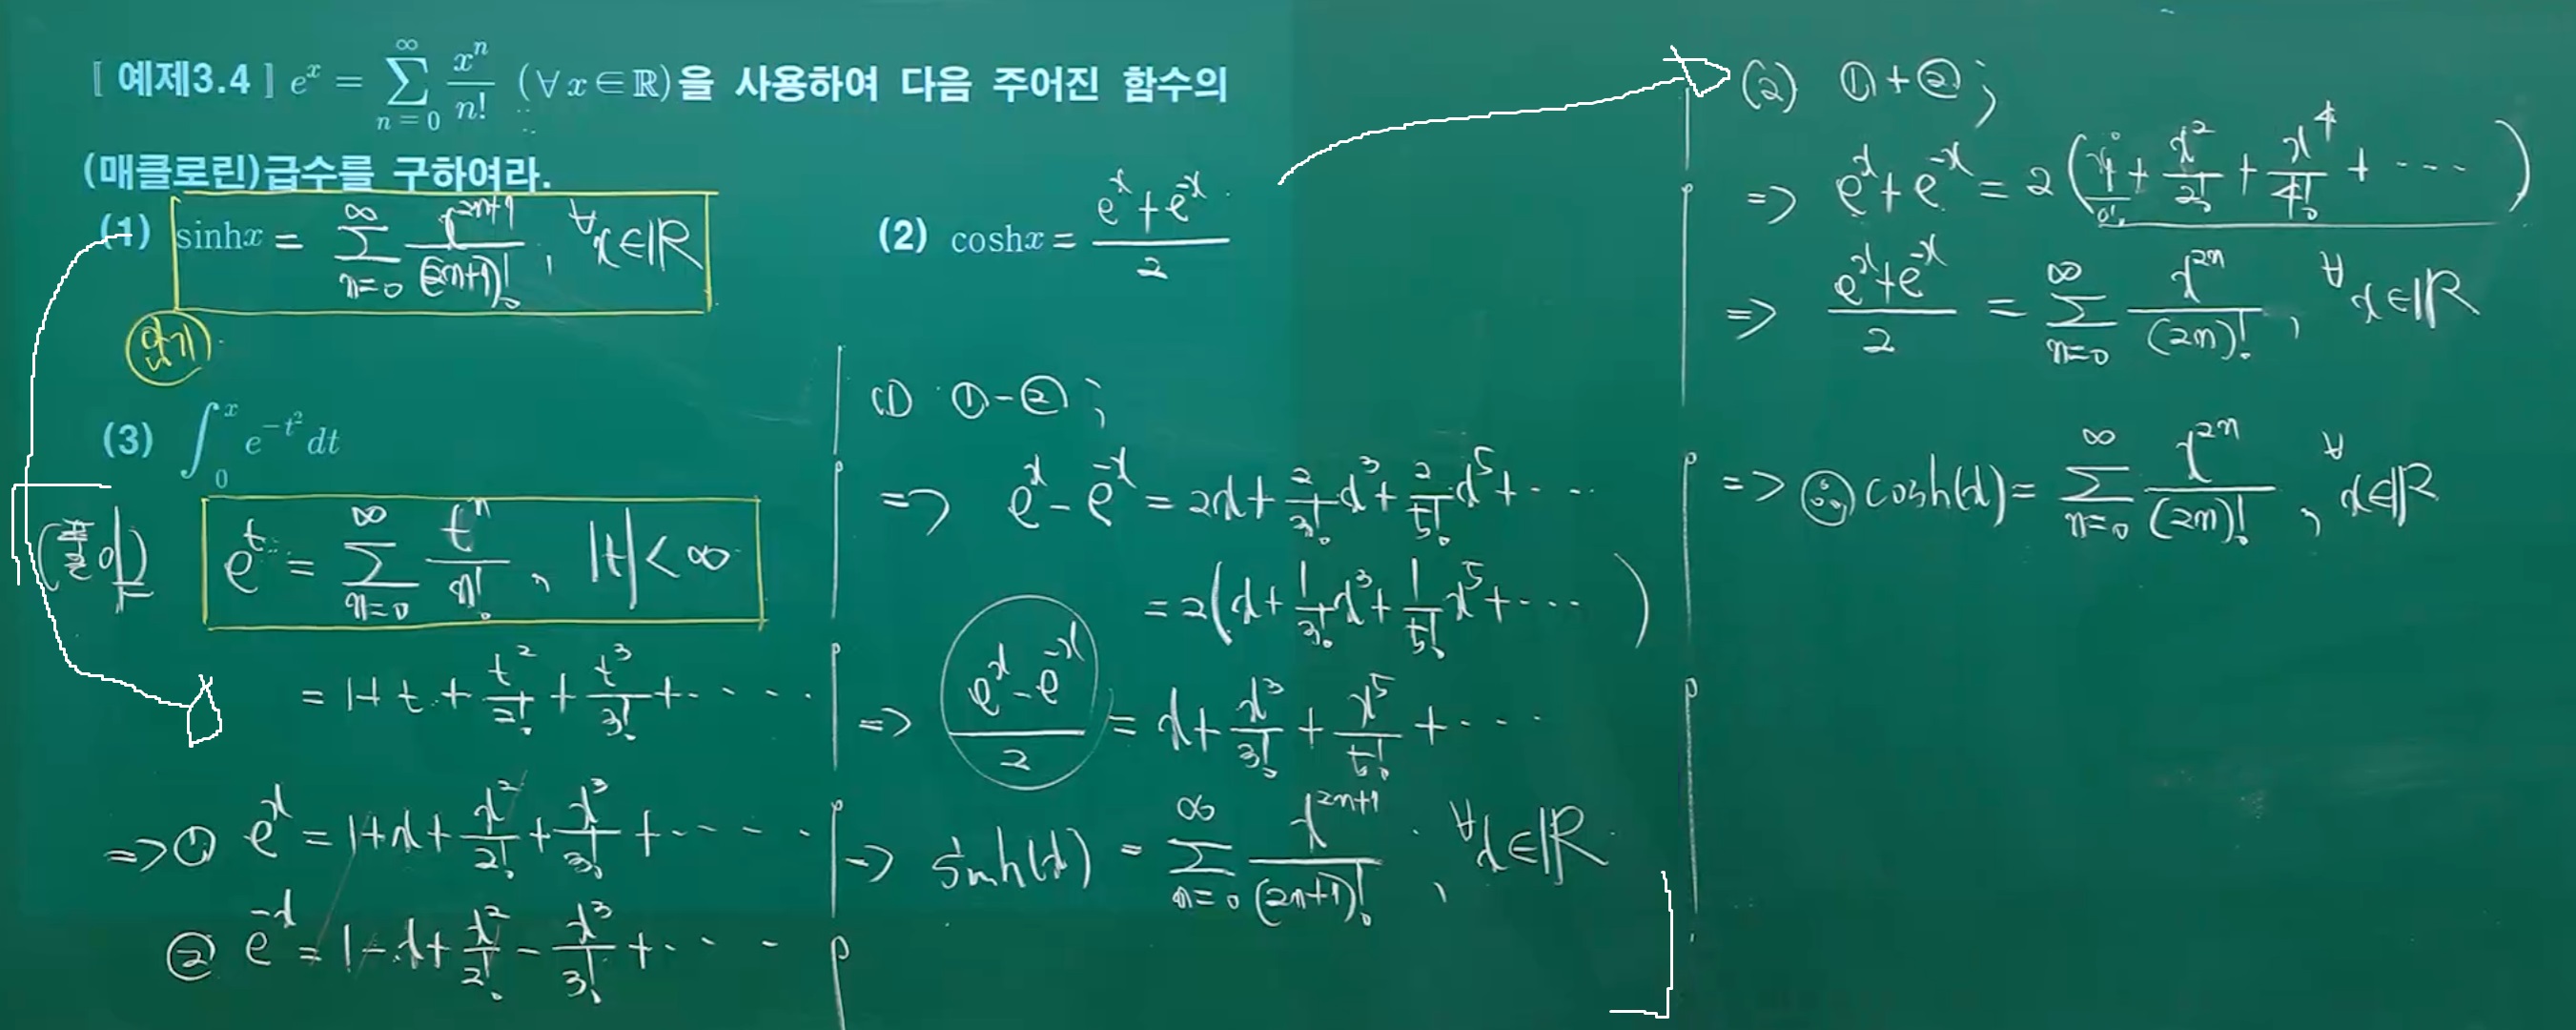 [예제3.4] e^x = ∑_{n=0}^{∞} x^n/n! (∀x∈ℝ)을 사용하여 다음 주어진 함수의
(매클로린)급수를 구하여라.
(1) sinhx = ∑_{n=0}^{∞} x^{2n+1}/(2n+1)! , ∀x∈ℝ
암기
(2) coshx = (e^x+e^{-x})/2
(3) ∫_0^x e^{-t^2} dt
(풀이)
e^t = ∑_{n=0}^{∞} t^n/n! , |t|<∞
= 1+t+t^2/2!+t^3/3!+·····
=> ① e^x = 1+x+x^2/2!+x^3/3!+·····
② e^{-x} = 1-x+x^2/2!-x^3/3!+····
(1) ①-② ;
=> e^x-e^{-x} = 2x+2/3! x^3+2/5! x^5+···
= 2(x+1/3! x^3+1/5! x^5+··· )
=> (e^x-e^{-x})/2 = x+x^3/3!+x^5/5!+···
=> sinh(x) = ∑_{n=0}^{∞} x^{2n+1}/(2n+1)! , ∀x∈ℝ
(2) ①+② ;
=> e^x+e^{-x} = 2(x^0/0!+x^2/2!+x^4/4!+··· )
=> (e^x+e^{-x})/2 = ∑_{n=0}^{∞} x^{2n}/(2n)! , ∀x∈ℝ
=> ∴ cosh(x) = ∑_{n=0}^{∞} x^{2n}/(2n)! , ∀x∈ℝ